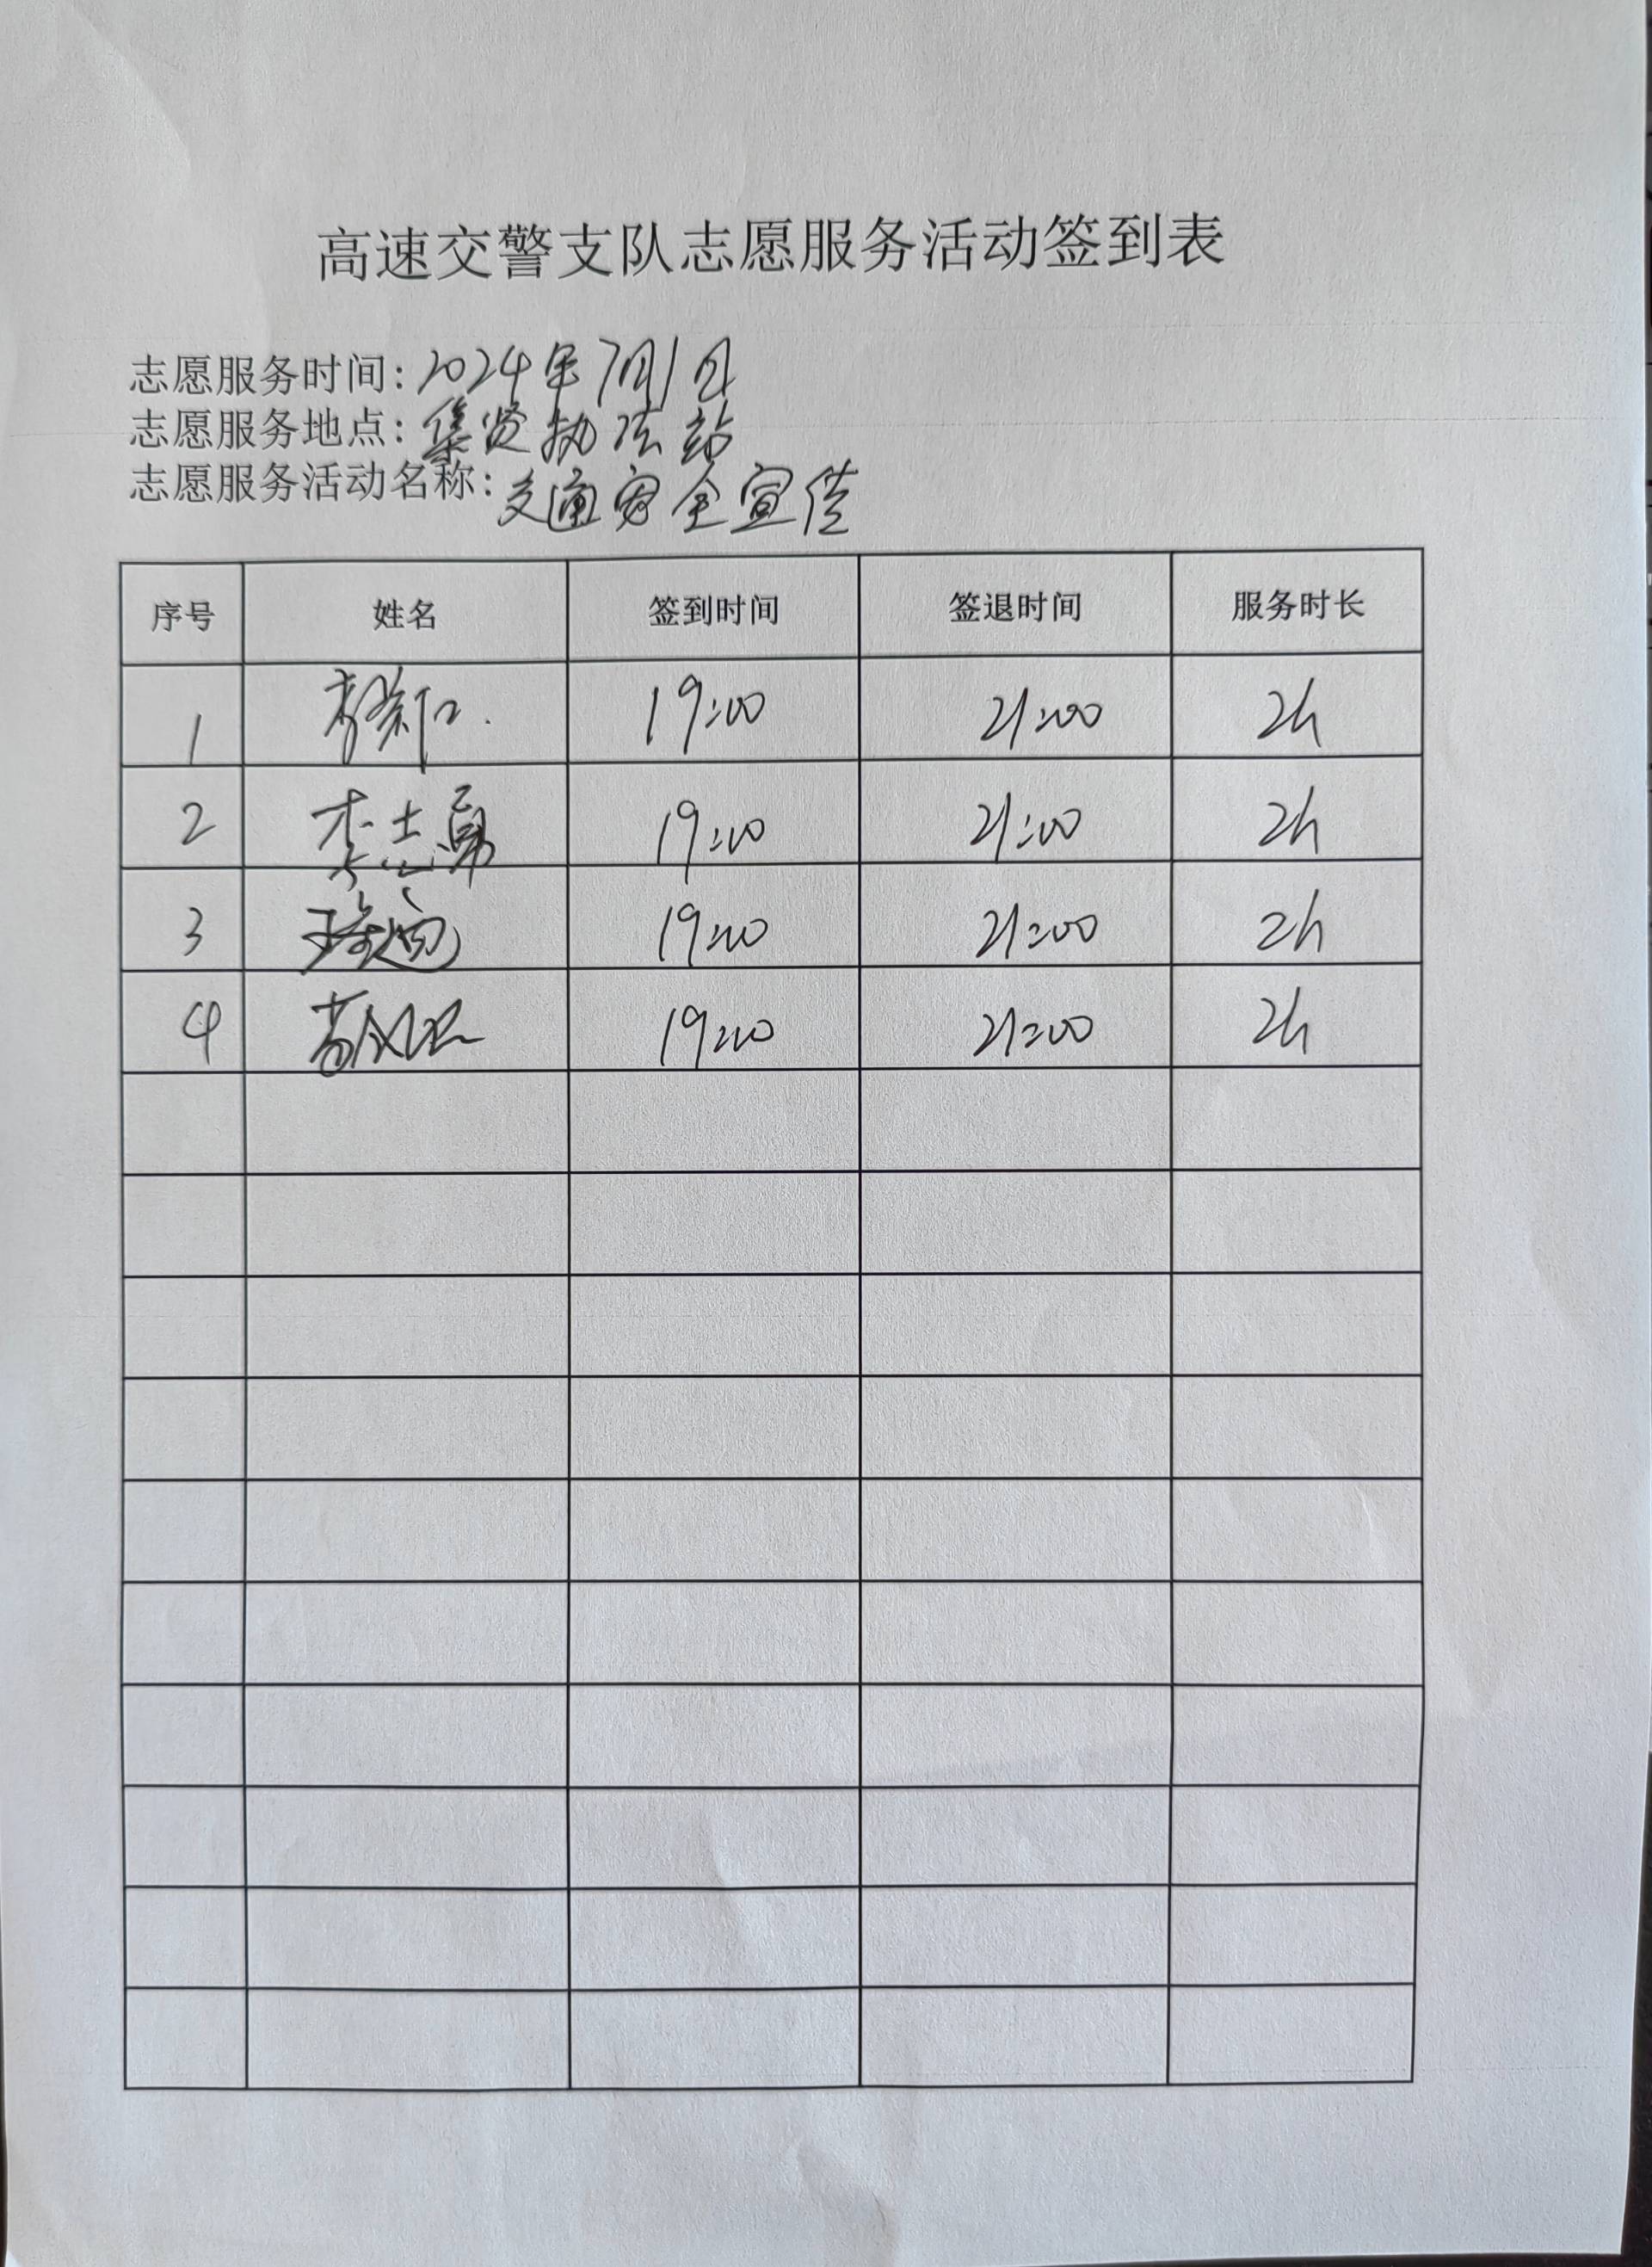 高速交警支队志愿服务活动签到表
志愿服务时间:2024年7月1日
志愿服务地点:集贤执法站
志愿服务活动名称:交通安全宣传
序号 姓名 签到时间 签退时间 服务时长
1 19:00 21:00 2h
2 李志勇 19:00 21:00 2h
3 19:00 21:00 2h
4 19:00 21:00 2h